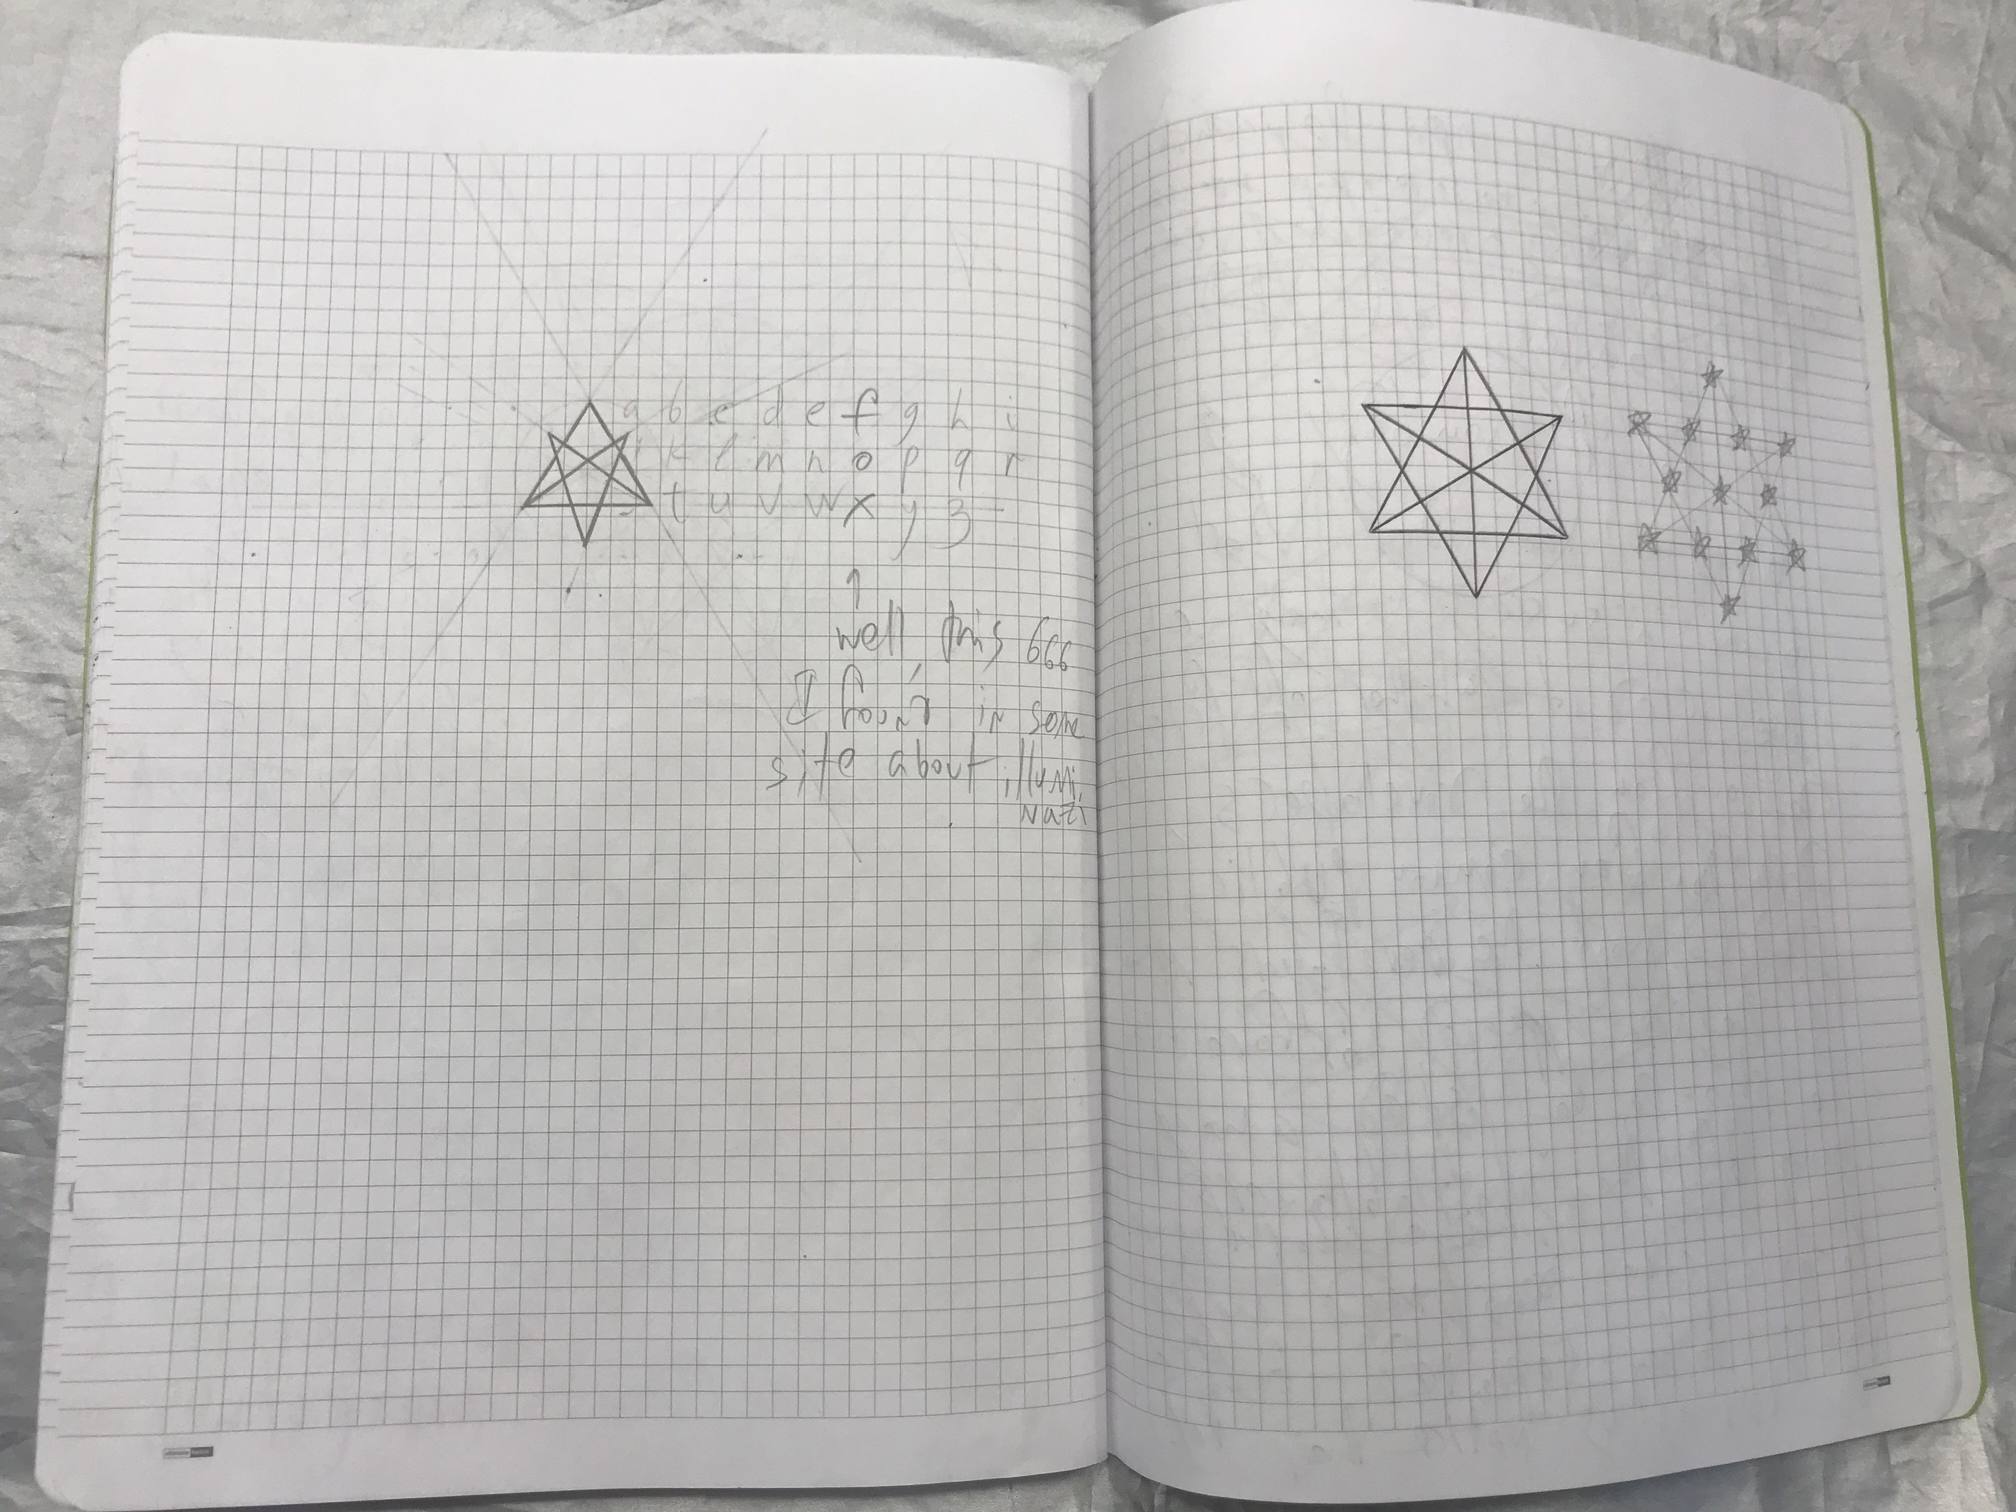 a b c d e f g h i
j k l m n o p q r
s t u v w x y z
well, this 666
I found in some
site about illumi
nati